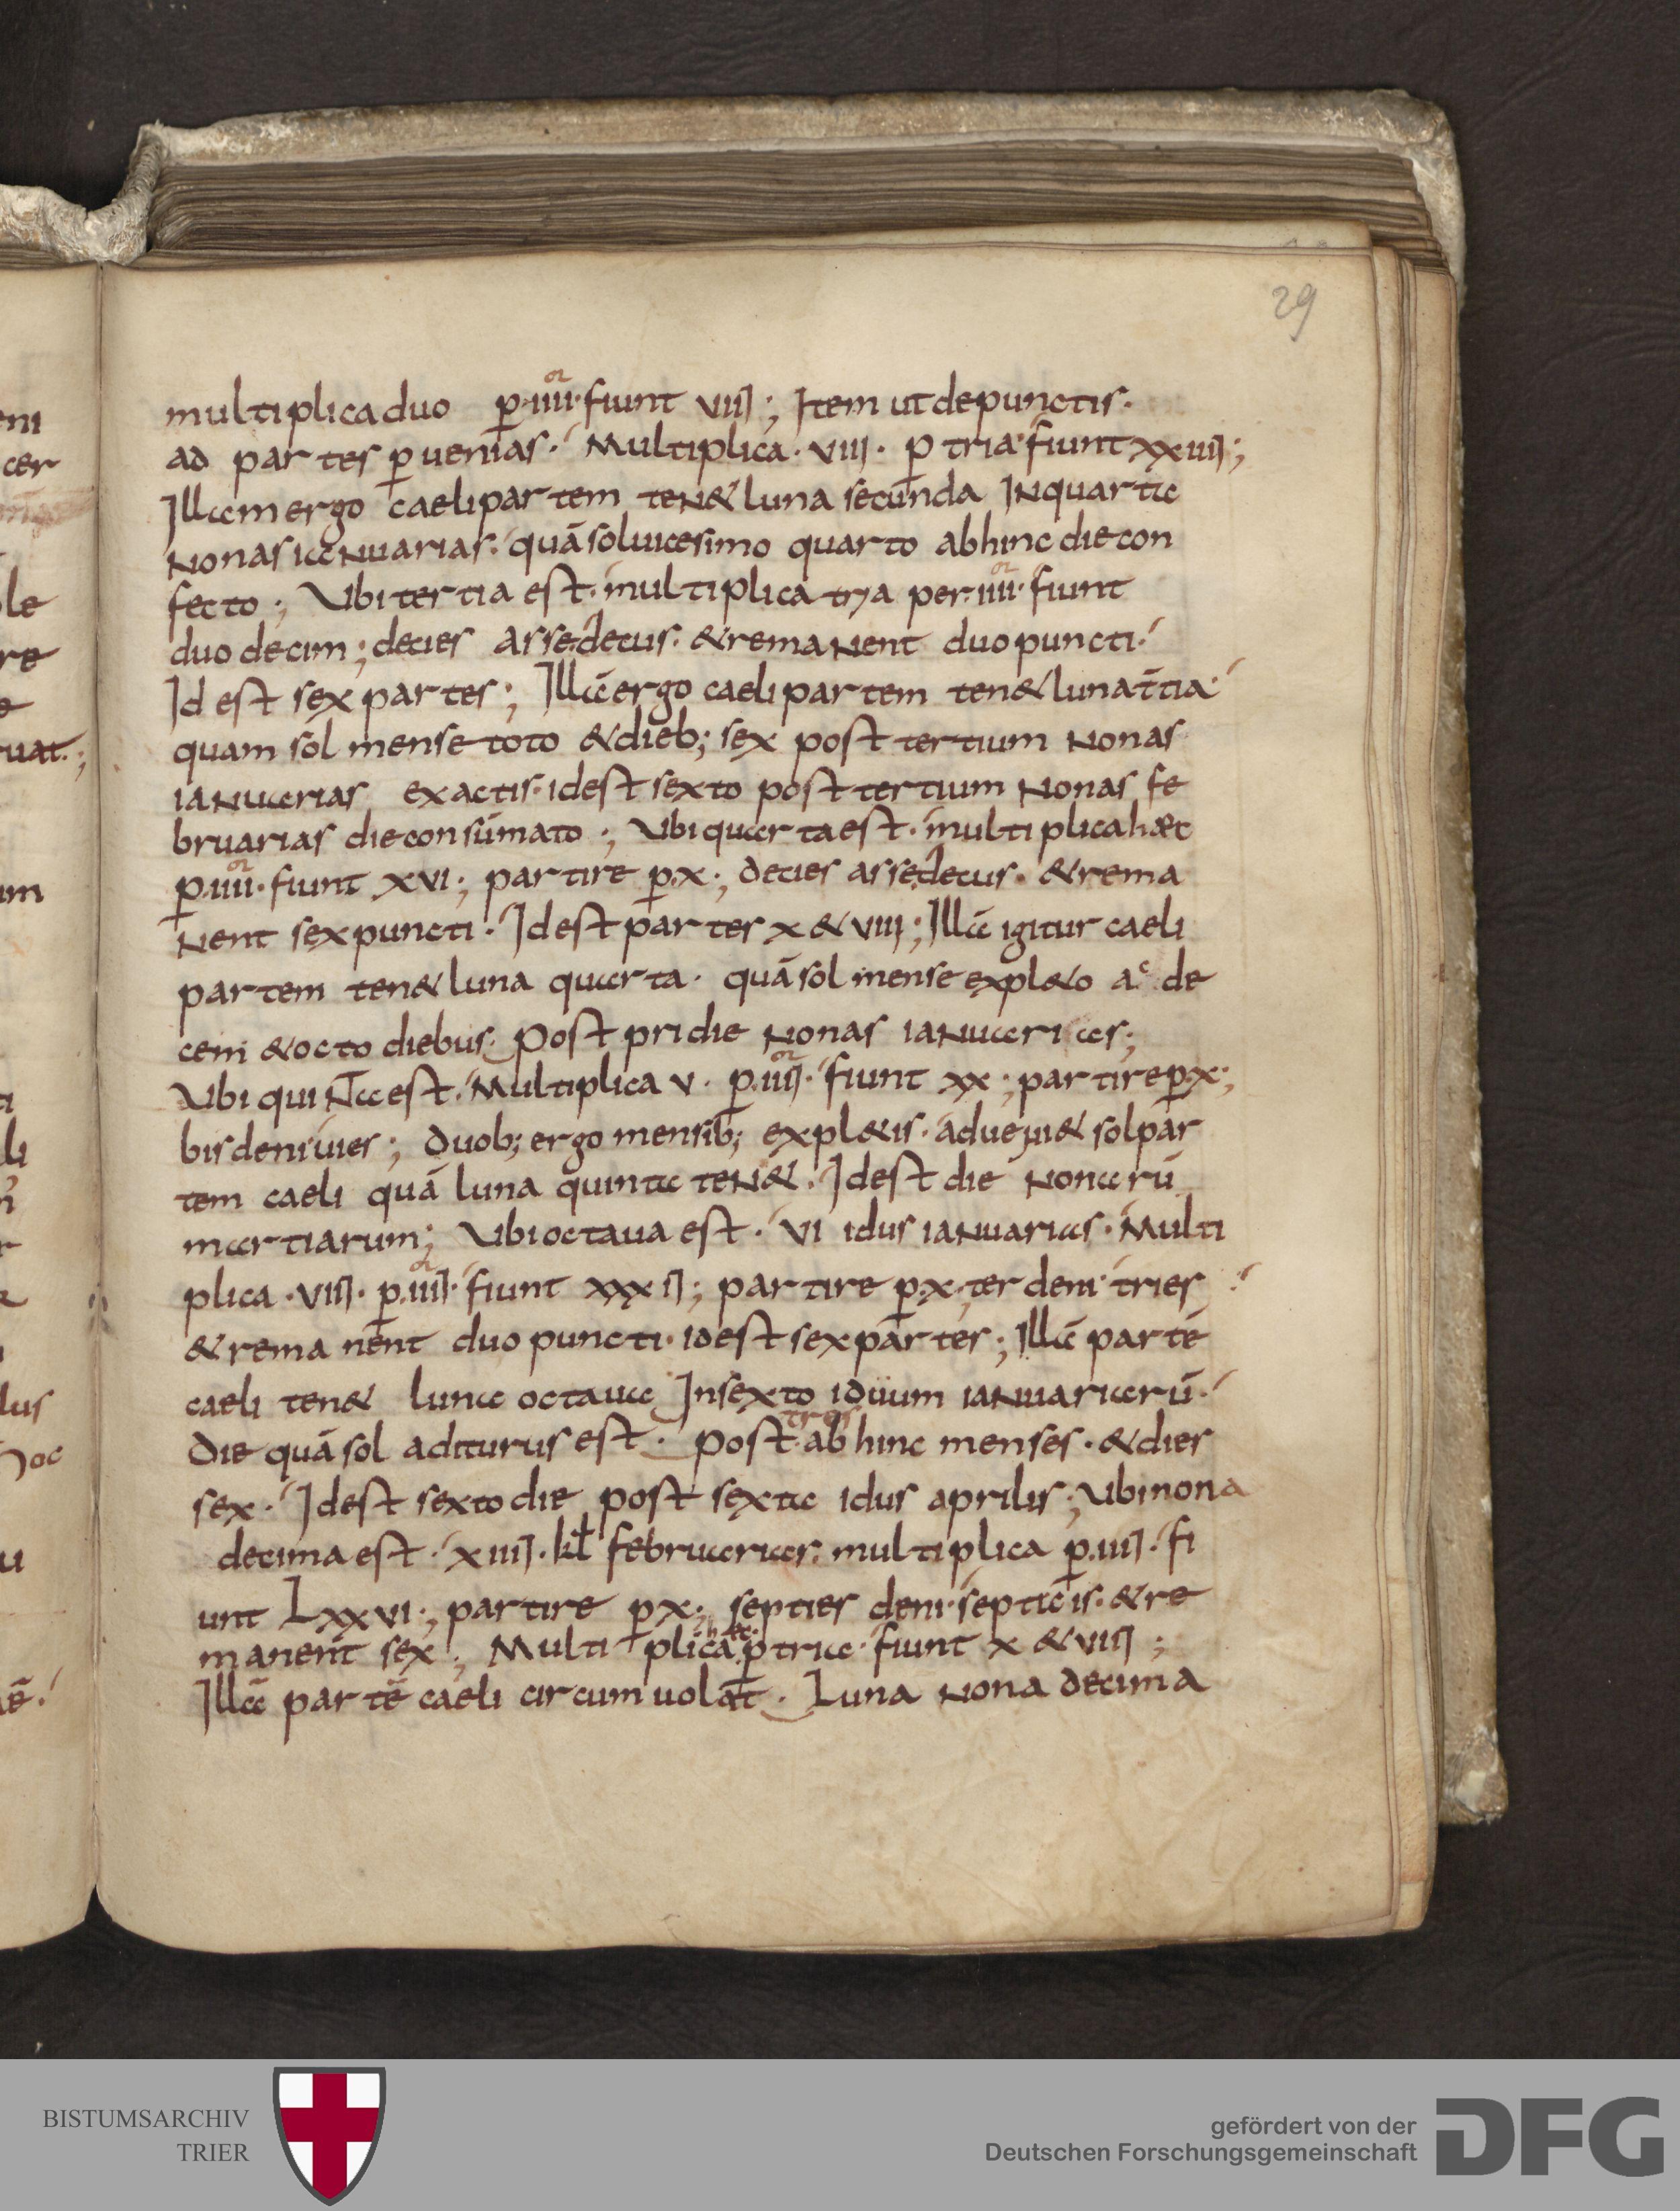 29
multiplica duo p̱·iiii·^or fiunt viii; Item ut de punctis·
ad partes p̱uenias· Multiplica·viii· p̱ tria· fiunt xxiiii;
Illam ergo caeli partem ten& luna secunda In quarta
Nonas iaNuarias· quā sol uicesimo quarto abhinc die con
fecto; Ubi tertia est· multiplica tria per·iiii·^or fiunt
duo decim; decies asse decus· & remaNent duo puncti·
Id est sex partes; Illā ergo caeli partem ten& luna t̄tia·
quam sol mense toto & dieb; sex post tertium Nonas
iaNuarias exactis· id est sexto post tertium Nonas fe
bruarias die consūmato; Ubi quarta est· multiplica haec
p̱·iiii·^or fiunt xvi; partire p̱·x·; decies asse decus· & rema
Nent sex puncti· Id est partes x & viii; Illā igitur caeli
partem ten& luna quarta· quā sol mense expl&o ac de
cem & octo diebus· Post pridie Nonas iaNuarias;
Ubi quiNta est· Multiplica v· p̱·iiii·^or fiunt xx; partire p̱·x·;
bis deni uies; duob; ergo mensib; expl&is· adueni& sol par
tem caeli quā luna quinta teN&· Id est die Nonarū
martiarum; Ubi octaua est· vi idus iaNuarias· Multi
plica·viii· p̱·iiii·^or fiunt xxxii; partire p̱·x·; ter deni· tries
& remanent duo puncti· id est sex partes; Illā partē
caeli ten& luna octaua In sexto iduum iaNuariarū·
Die quā sol aditurus est· post·
tres
abhinc menses· & dies
sex· Id est sexto die post sexta idus aprilis; Ubi nona
decima est· xiiii·kƚ februarias· multiplica p̱·iiii· fi
unt Lxxvi·; partire p̱ x·; septies deni· septicis· & re
manent sex; Multiplica
haec·
p̱ tria· fiunt x & viii;
Illā partē caeli circumuolat· Luna Nona decima
BISTUMSARCHIV
TRIER
gefördert von der
Deutschen Forschungsgemeinschaft
DFG